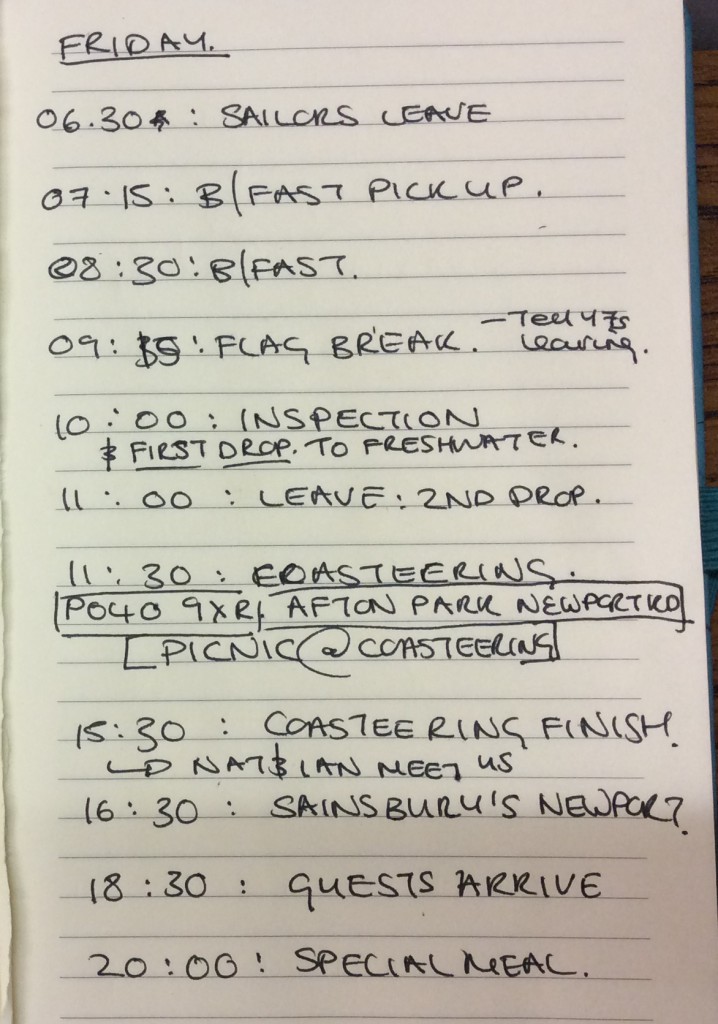 FRIDAY.
06.30 : SAILORS LEAVE
07.15 : B/FAST PICK UP.
08:30 : B/FAST.
– Tell 47s
09: : FLAG BREAK. leaving.
10:00 : INSPECTION
& FIRST DROP. TO FRESHWATER.
11:00 : LEAVE : 2ND DROP.
11:30 : COASTEERING.
PO40 9XR, AFTON PARK NEWPORT RD
PICNIC @ COASTEERING
15:30 : COASTEERING FINISH.
↳ NAT & IAN MEET US
16:30 : SAINSBURY'S NEWPORT.
18:30 : GUESTS ARRIVE
20:00 : SPECIAL MEAL.